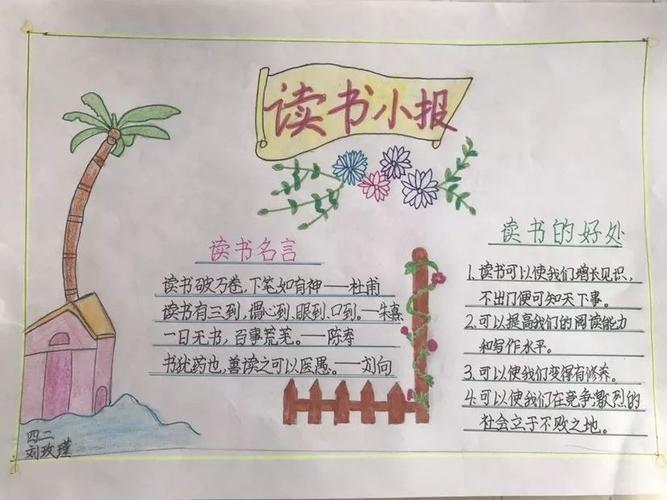 读书小报
读书名言
读书破万卷,下笔如有神——杜甫
读书有三到,谓心到.眼到.口到.——朱熹
一日无书,百事荒芜.——陈寿
书犹药也,善读之可以医愚.——刘向
读书的好处
1.读书可以使我们增长见识,
不出门便可知天下事。
2.可以提高我们的阅读能力
和写作水平。
3.可以使我们变得有修养。
4.可以使我们在竞争激烈的
社会立于不败之地。
四二
刘玫瑾